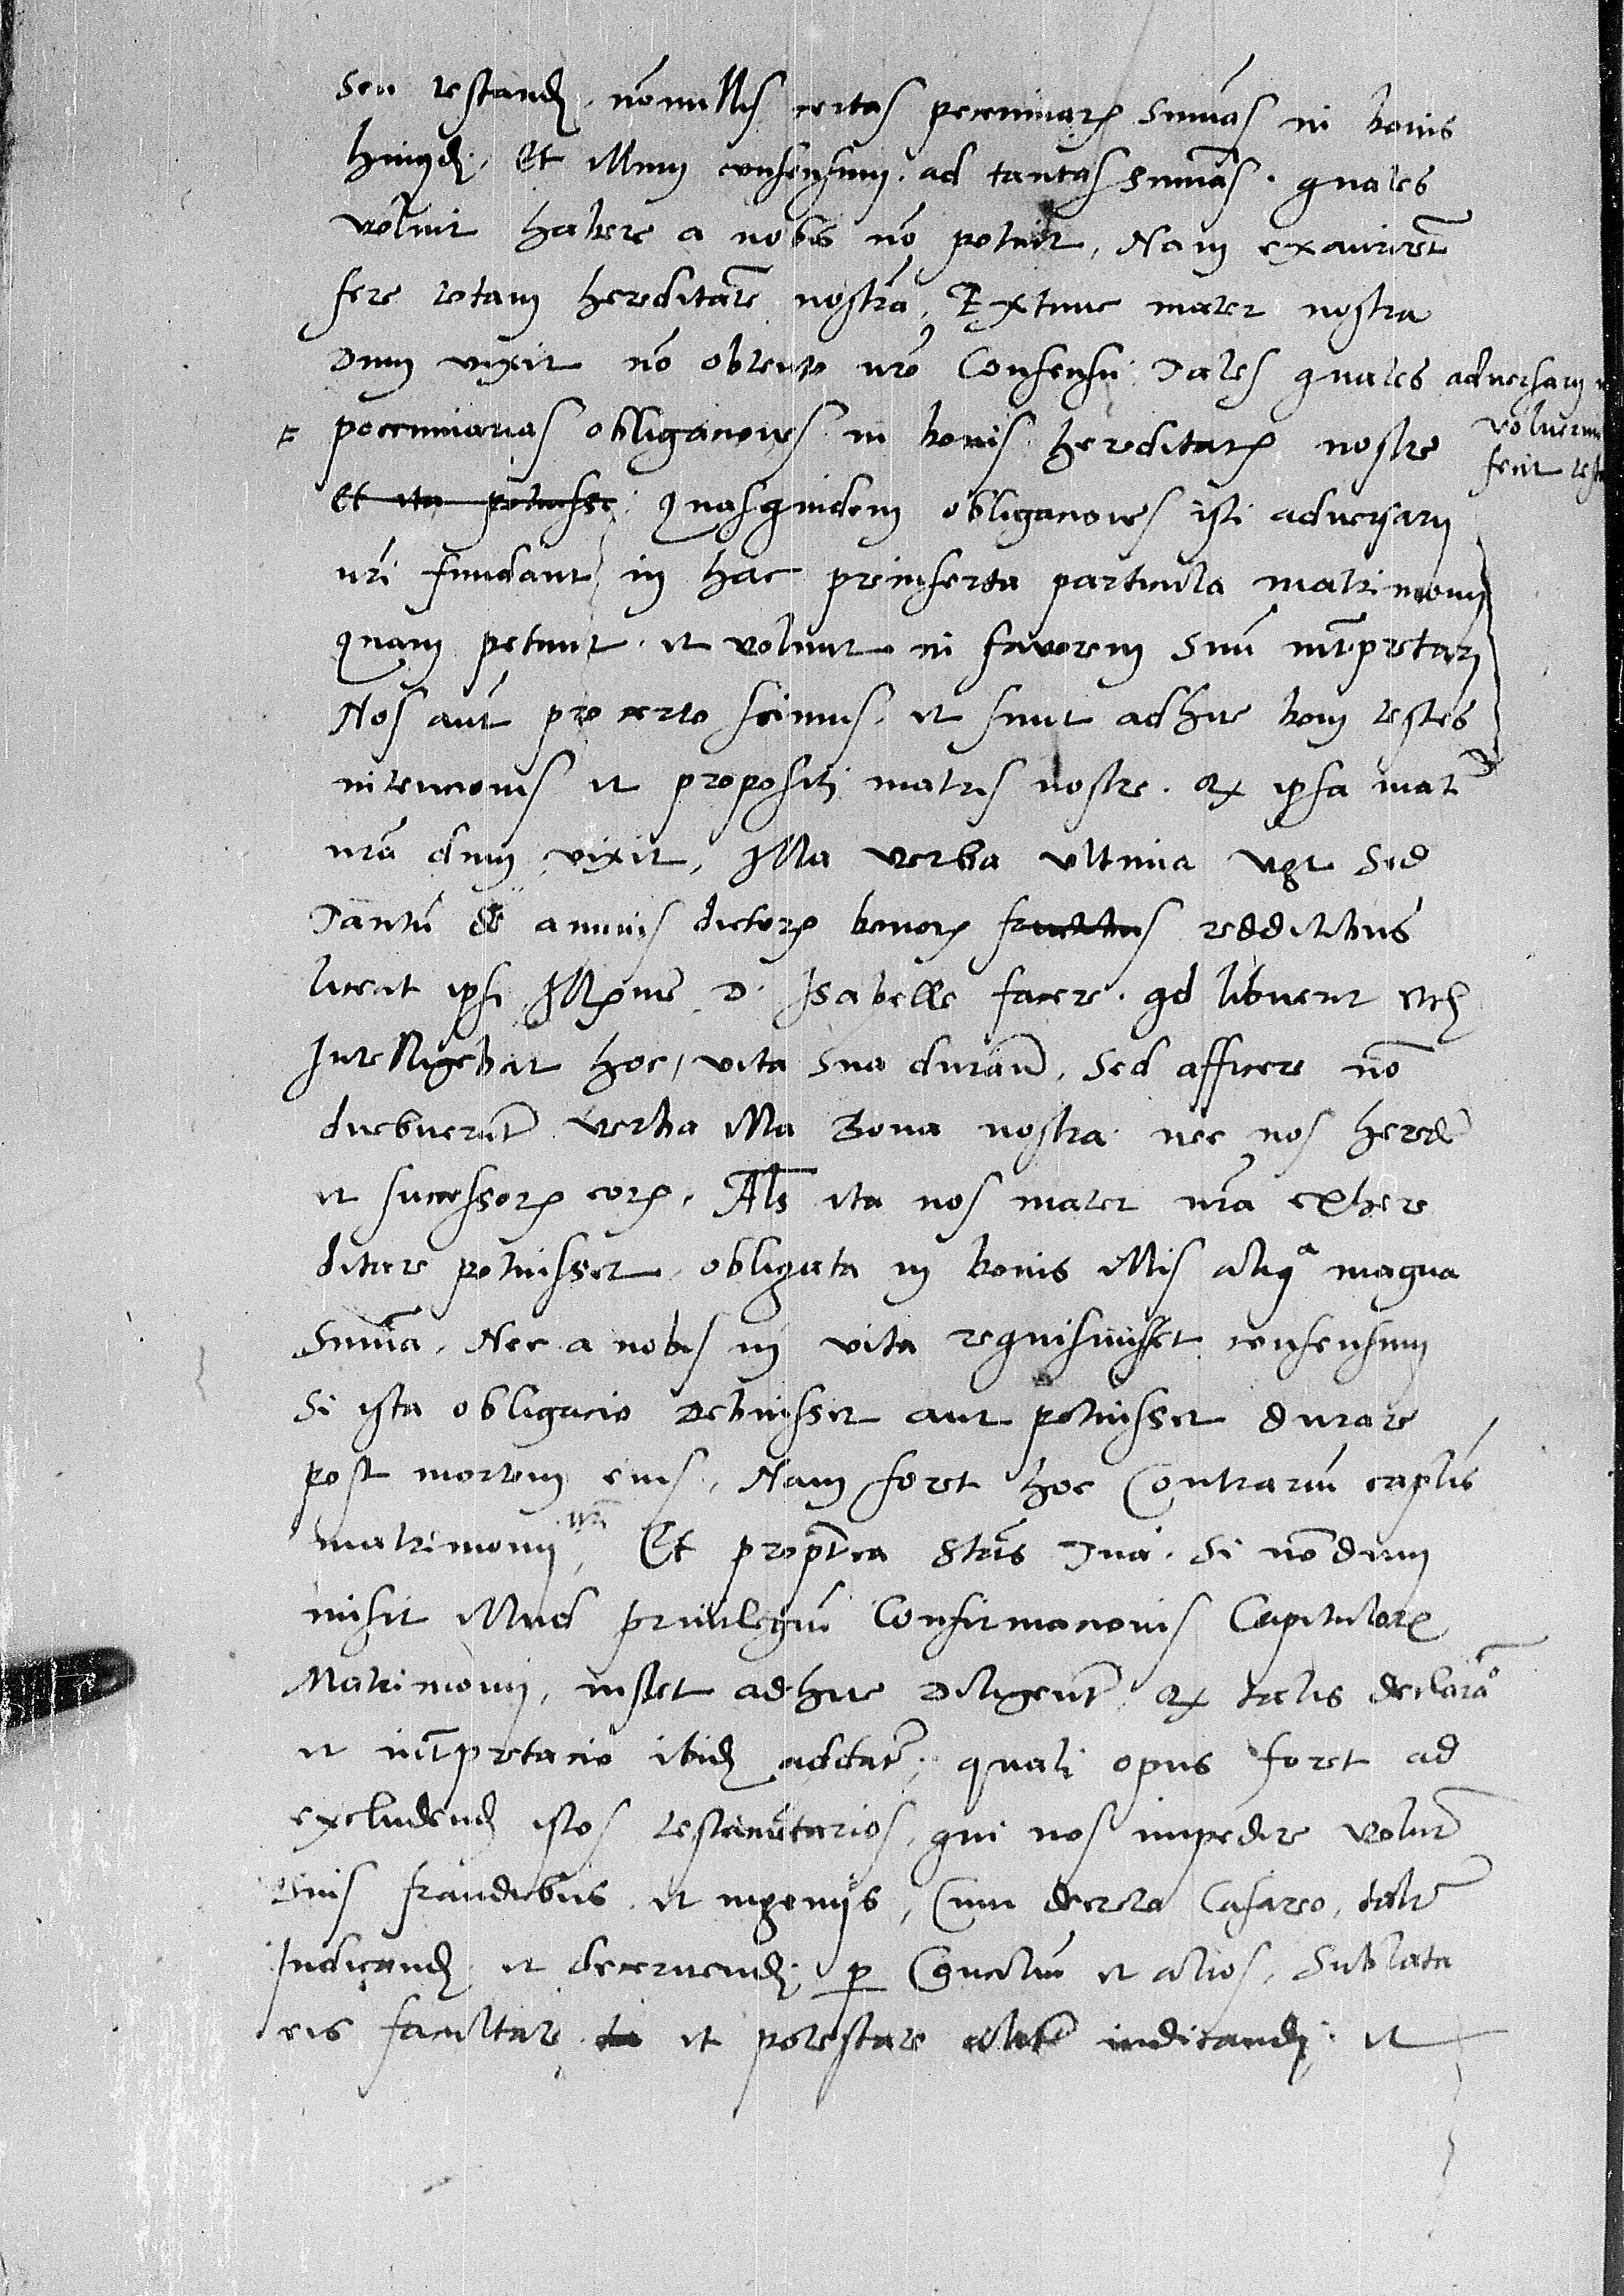 seu testand. nonnullis certas pecuniar. summas in bonis
huiusd. Et illum consensum. ad tantas summas. quales
voluit habere a nobis no potuit, Nam exaurirent
fere totam hereditate nostra, Extunc mater nostra
Dum vixit no obtento nro Consensu. Tales quales adversarii
voluerunt
pecuniarias obligaciones in bonis hereditatis nostre
fecit
Et ita potuisse: Quasquidem obligaciones isti adversarii
nri fundant in hac preinserta particula matrimonii
quam petunt. et volunt in favorem suu interpretari
Nos aut pro certo scimus. et sunt adhuc boni testes
intencionis et propositi matris nostre. qx ipsa mater
nra dum vixit, Illa verba ultima vgt Sed
Tantu de annuis dictor. bonor. fructibus redditibus
liceat ipsi Illme D. Isabelle facere. qd libuerit etc
Intelligebat hoc, vita sua durante, Sed afficere no
debuerunt verba illa Bona nostra nec nos herede
et successor. eor. Als ita nos mater nra exhere
ditare potuisset, obligata in bonis illis aliqa magna
Summa, Nec a nobis in vita requisivisset consensum
Si ista obligacio Debuisset aut potuisset durare
post mortem eius, Nam foret hoc Contrariu caplis
matrimonii nri, Et propterea Stas Tua. Si nondum
misit illud priuilegiu Confirmacionis Capitulor.
Matrimonii, instet adhuc Diligenter qx talis declarao
et interpretacio ibid. addatur, quali opus foret ad
excludend. istos testamentarios, qui nos impedire volunt
Suis fraudibus et ingeniis, Cum decreto Cesareo, taliter
Judicand. et decernend. p Consiliu et alios, Sublata
eis facultate et potestate aliter iudicandi. et